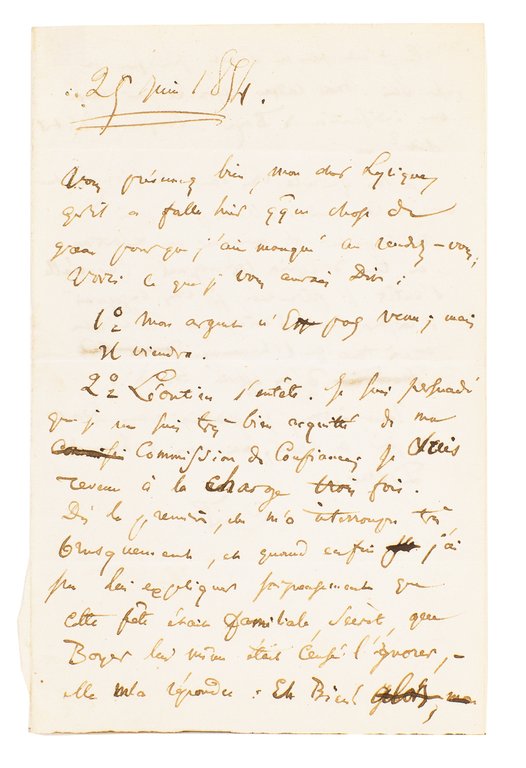 25 juin 1854.
Vous présumez bien, mon cher
qu'il a fallu hier qq chose de
grave pour que j'aie manqué au rendez-vous;
Voici ce que je vous aurais dit :
1º Mon argent n'est pas venu; mais
il viendra.
2º Léontine s'entête. Je suis persuadé
que je me suis très bien acquitté de ma
Commission de Confiance; je suis
revenu à la charge trois fois.
Dès la première, elle m'a interrompu très
brusquement, et quand enfin j'ai
pu lui expliquer soigneusement que
cette fête était familiale, secrète, que
Boyer lui même était censé l'ignorer, –
elle m'a répondu : Eh Bien!